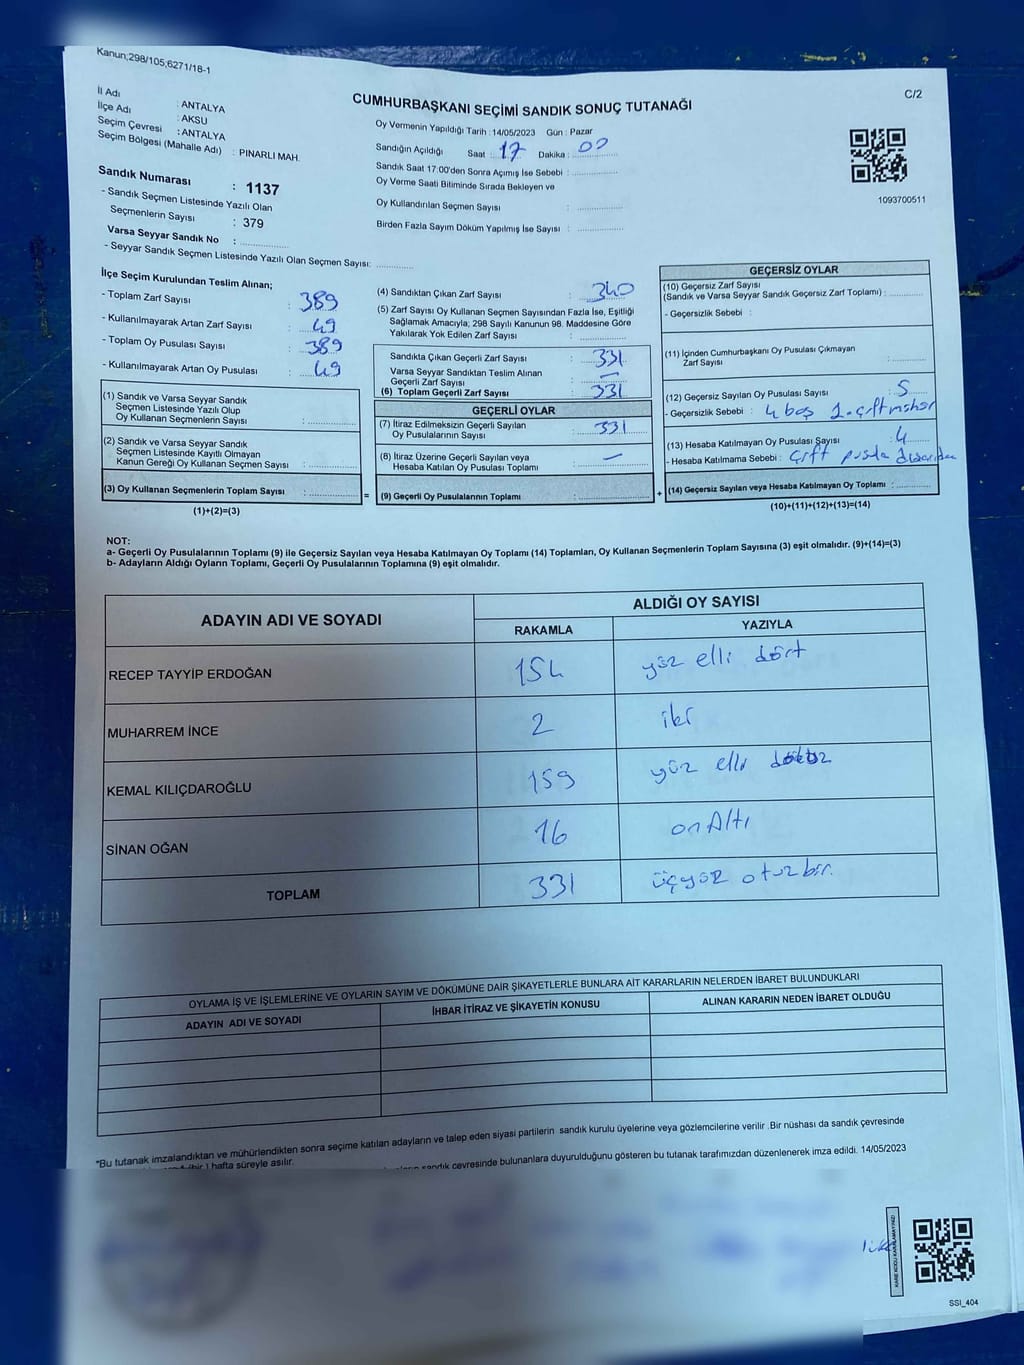 Kanun;298/105;6271/18-1
C/2
CUMHURBAŞKANI SEÇİMİ SANDIK SONUÇ TUTANAĞI
İl Adı : ANTALYA
İlçe Adı : AKSU
Seçim Çevresi : ANTALYA
Seçim Bölgesi (Mahalle Adı) : PINARLI MAH.
Sandık Numarası : 1137
- Sandık Seçmen Listesinde Yazılı Olan
Seçmenlerin Sayısı : 379
Varsa Seyyar Sandık No :
- Seyyar Sandık Seçmen Listesinde Yazılı Olan Seçmen Sayısı:
Oy Vermenin Yapıldığı Tarih : 14/05/2023 Gün : Pazar
Sandığın Açıldığı Saat : 17 Dakika : 00
Sandık Saat 17:00'den Sonra Açımış İse Sebebi :
Oy Verme Saati Bitiminde Sırada Bekleyen ve
Oy Kullandırılan Seçmen Sayısı :
Birden Fazla Sayım Döküm Yapılmış İse Sayısı :
1093700511
İlçe Seçim Kurulundan Teslim Alınan;
- Toplam Zarf Sayısı : 389
- Kullanılmayarak Artan Zarf Sayısı : 49
- Toplam Oy Pusulası Sayısı : 389
- Kullanılmayarak Artan Oy Pusulası : 49
(1) Sandık ve Varsa Seyyar Sandık
Seçmen Listesinde Yazılı Olup
Oy Kullanan Seçmenlerin Sayısı :
(2) Sandık ve Varsa Seyyar Sandık
Seçmen Listesinde Kayıtlı Olmayan
Kanun Gereği Oy Kullanan Seçmen Sayısı :
(3) Oy Kullanan Seçmenlerin Toplam Sayısı :
(1)+(2)=(3)
(4) Sandıktan Çıkan Zarf Sayısı : 340
(5) Zarf Sayısı Oy Kullanan Seçmen Sayısından Fazla İse, Eşitliği
Sağlamak Amacıyla; 298 Sayılı Kanunun 98. Maddesine Göre
Yakılarak Yok Edilen Zarf Sayısı :
Sandıkta Çıkan Geçerli Zarf Sayısı : 331
Varsa Seyyar Sandıktan Teslim Alınan
Geçerli Zarf Sayısı : —
(6) Toplam Geçerli Zarf Sayısı : 331
GEÇERLİ OYLAR
(7) İtiraz Edilmeksizin Geçerli Sayılan
Oy Pusulalarının Sayısı : 331
(8) İtiraz Üzerine Geçerli Sayılan veya
Hesaba Katılan Oy Pusulası Toplamı : —
= (9) Geçerli Oy Pusulalarının Toplamı :
GEÇERSİZ OYLAR
(10) Geçersiz Zarf Sayısı
(Sandık ve Varsa Seyyar Sandık Geçersiz Zarf Toplamı) :
- Geçersizlik Sebebi :
(11) İçinden Cumhurbaşkanı Oy Pusulası Çıkmayan
Zarf Sayısı :
(12) Geçersiz Sayılan Oy Pusulası Sayısı : 5
- Geçersizlik Sebebi : 4 boş 1. çift mühür
(13) Hesaba Katılmayan Oy Pusulası Sayısı : 4
- Hesaba Katılmama Sebebi : Çift pusula
+ (14) Geçersiz Sayılan veya Hesaba Katılmayan Oy Toplamı :
(10)+(11)+(12)+(13)=(14)
NOT:
a- Geçerli Oy Pusulalarının Toplamı (9) ile Geçersiz Sayılan veya Hesaba Katılmayan Oy Toplamı (14) Toplamları, Oy Kullanan Seçmenlerin Toplam Sayısına (3) eşit olmalıdır. (9)+(14)=(3)
b- Adayların Aldığı Oyların Toplamı, Geçerli Oy Pusulalarının Toplamına (9) eşit olmalıdır.
ADAYIN ADI VE SOYADI
ALDIĞI OY SAYISI
RAKAMLA YAZIYLA
RECEP TAYYİP ERDOĞAN 154 yüz elli dört
MUHARREM İNCE 2 iki
KEMAL KILIÇDAROĞLU 159 yüz elli dokuz
SİNAN OĞAN 16 on Altı
TOPLAM 331 üçyüz otuzbir.
OYLAMA İŞ VE İŞLEMLERİNE VE OYLARIN SAYIM VE DÖKÜMÜNE DAİR ŞİKAYETLERLE BUNLARA AİT KARARLARIN NELERDEN İBARET BULUNDUKLARI
ADAYIN ADI VE SOYADI İHBAR İTİRAZ VE ŞİKAYETİN KONUSU ALINAN KARARIN NEDEN İBARET OLDUĞU
*Bu tutanak imzalandıktan ve mühürlendikten sonra seçime katılan adayların ve talep eden siyasi partilerin sandık kurulu üyelerine veya gözlemcilerine verilir .Bir nüshası da sandık çevresinde
(bir ) hafta süreyle asılır.
sandık çevresinde bulunanlara duyurulduğunu gösteren bu tutanak tarafımızdan düzenlenerek imza edildi. 14/05/2023
KARE KODU KARALAMAYINIZ!
SSI_404